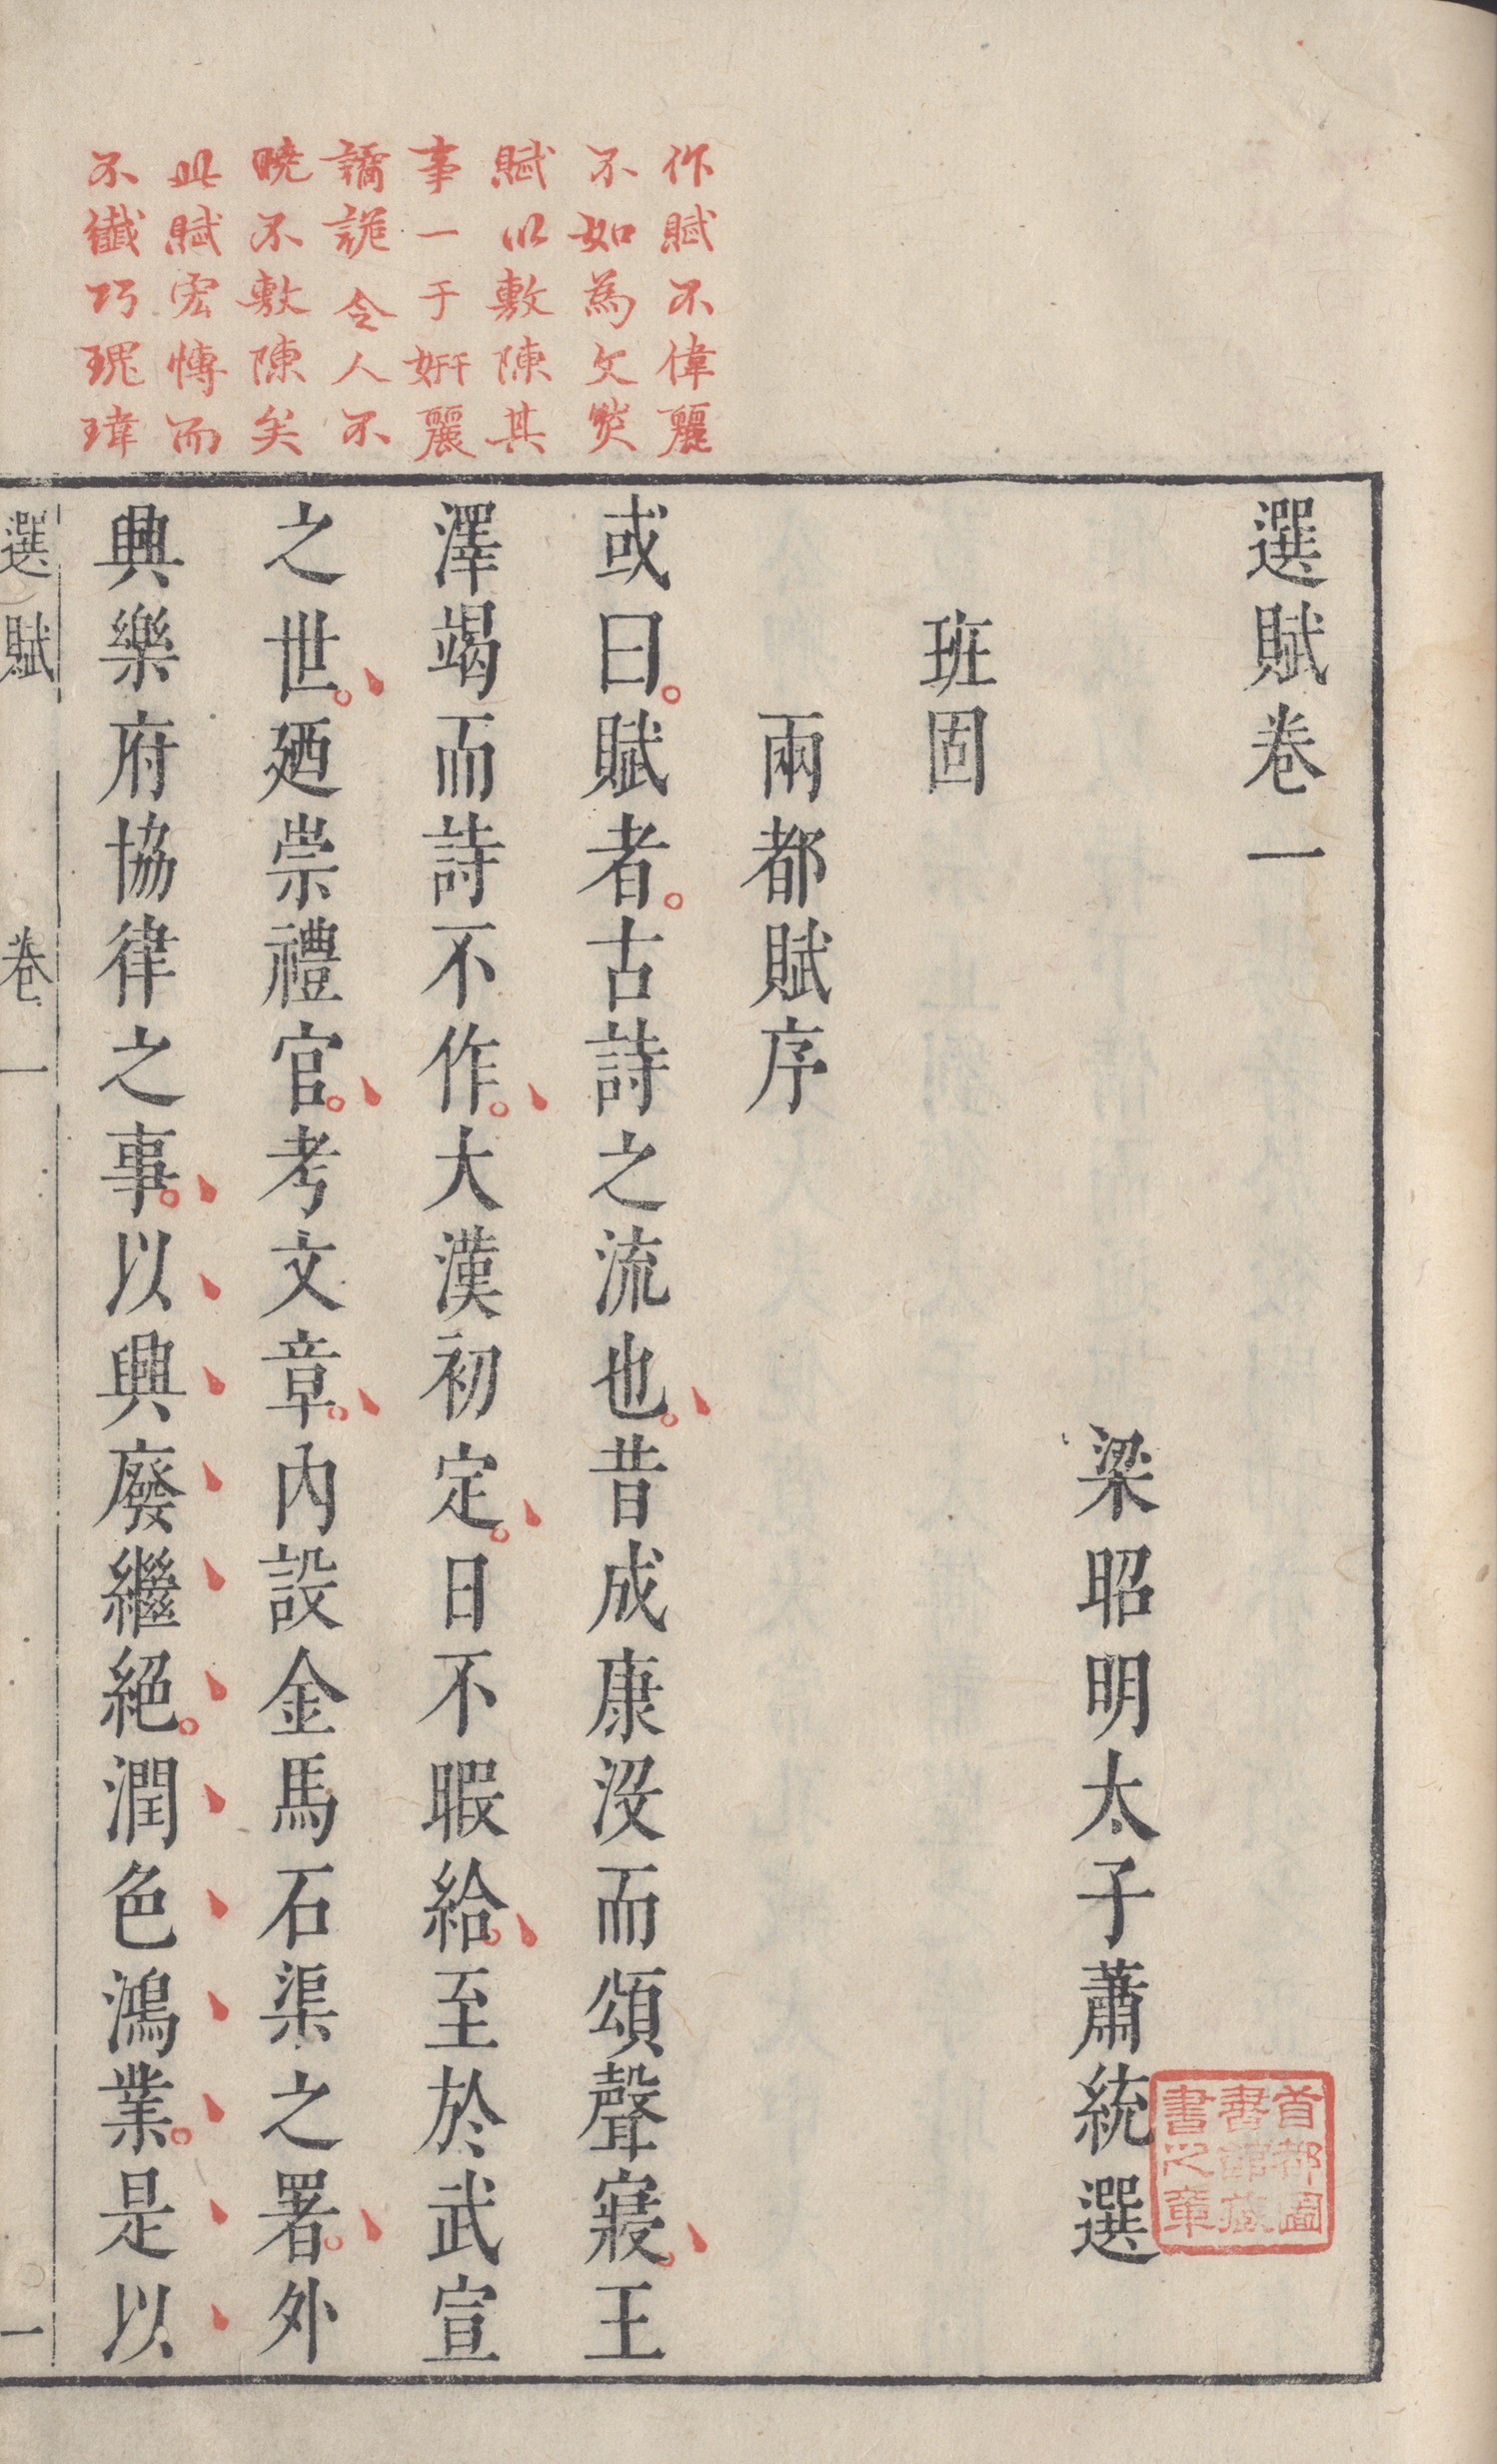 作賦不偉麗
不如為文然
賦以敷陳其
事一于妍麗
譎詭令人不
曉不敷陳矣
此賦宏博而
不纖巧瑰瑋
選賦卷一
梁昭明太子蕭統選
班固
兩都賦序
或曰。賦者。古詩之流也。昔成康沒而頌聲寢。王
澤竭而詩不作。大漢初定。日不暇給。至於武宣
之世。廼崇禮官。考文章。內設金馬石渠之署。外
興樂府協律之事。以興廢繼絕。潤色鴻業。是以
選賦 卷一 一
首都圖
書館藏
書之章